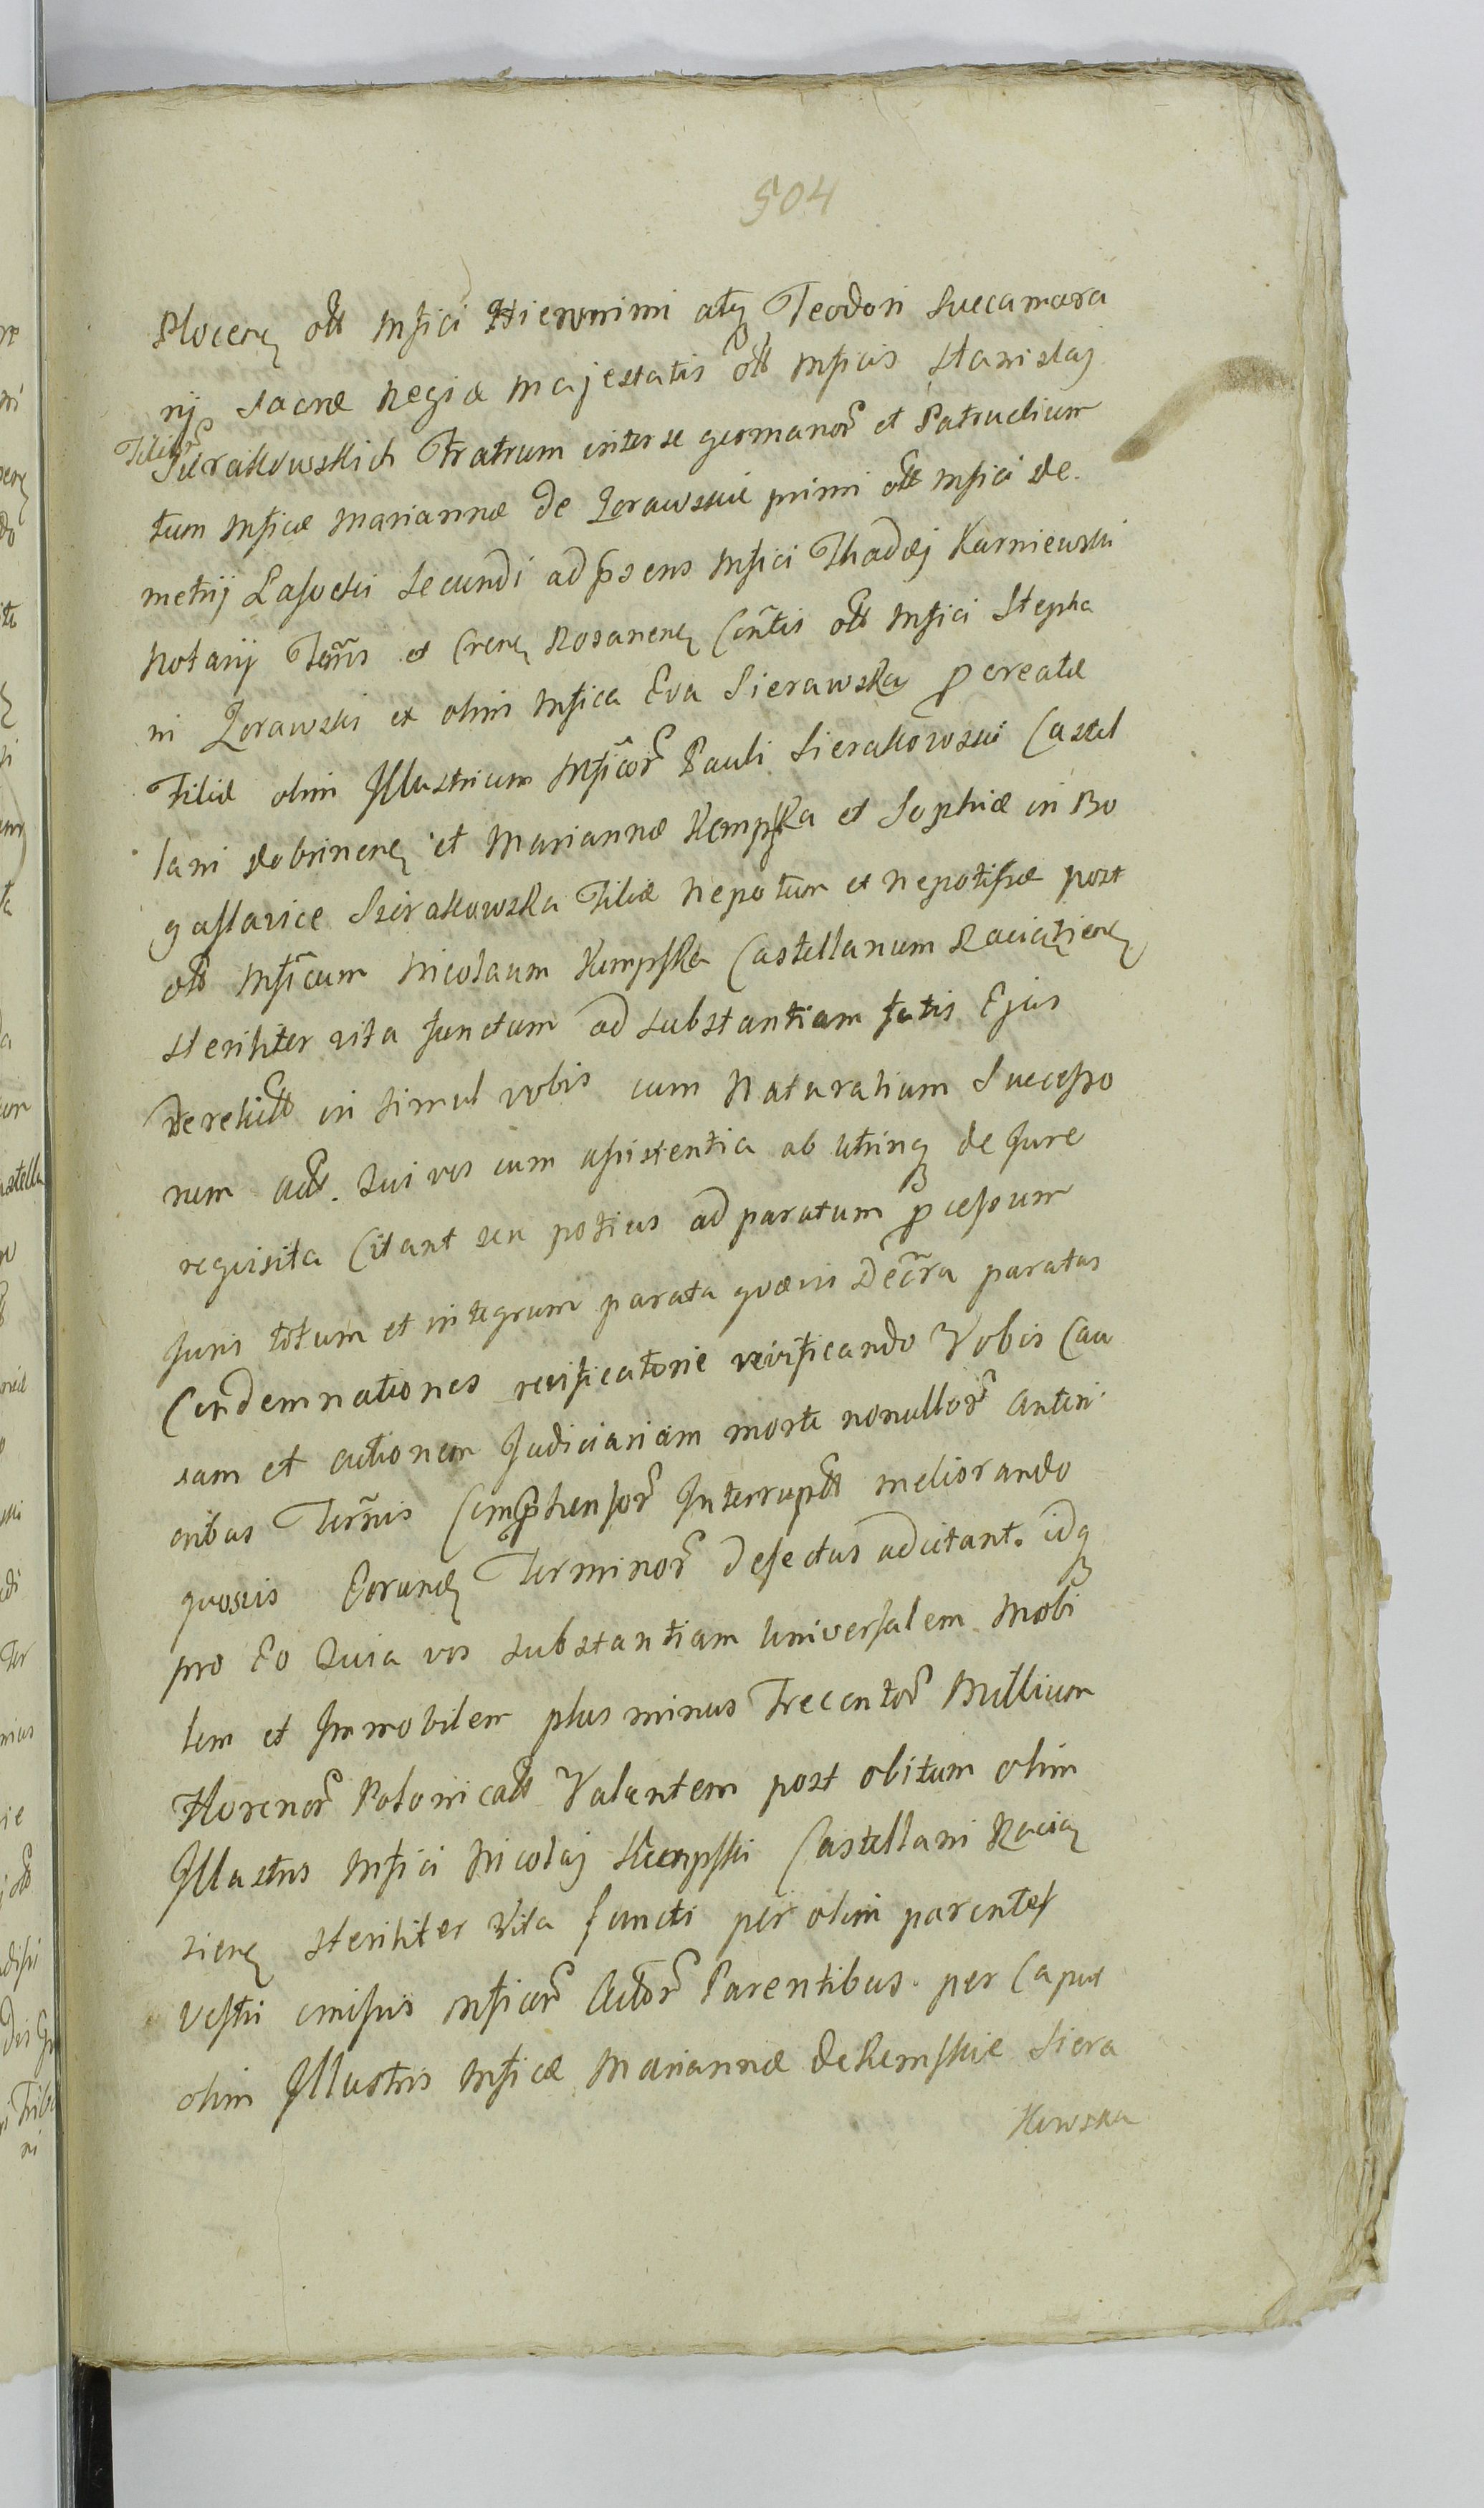 504
Plocen olt Mfici Hieronimi atq Teodori Succamera
rij Sacræ Regiæ Majestatis olt Mficis Stanislaj
Filior
Sierakowskich Fratrum inter se germanor et Patruelium
tum Mficæ Mariannæ de Zorawskie primi olt Mfici De
metrij Lasocki Secundi ad psens Mfici Thadæj Karniewski
Notarij Terris et Cren Rosanen Contis olt Mfici Stepha
ni Zorawski et olim Mfica Eva Sierawska pcreatæ
Filiæ olim Illustrium Mficor Pauli Sierakowski Castel
lani Dobrinen et Mariannæ Kempska et Sophiæ in Bo
guslavice Sierakowska Filiæ Nepotum et Nepotissæ post
olt Mficum Nicolaum Kempska Castellanum Raciążien
steriliter vita functum ad substantiam fatis Ejus
derelict in simul vobis cum Naturalium Successo
rum act. Qui vos cum assistentia ab utrinq de Jure
requisita Citant seu potius ad paratum pcessum
Juris totum et integrum parata quævis Decra paratas
Condemnationes reificatorie reificando Vobis Cau
sam et actionem Judiciariam morte nonullor anteri
oribus Termis Comphensor Interrupt meliorando
quosvis Eorund Terminor defectus adcitant. idq
pro Eo Quia vos substantiam Universalem Mobi
lem et Immobilem plus minus Trecentor Millium
Florenor Polonicalt Valantem post obitum olim
Illustris Mfici Nicolaj Kempski Castellani Racią
zien steriliter Vita functi per olim parentes
vestri omissis Mficor Actor Parentibus per Caput
olim Illustris Mficæ Mariannæ de Kemskie Siera
kowska